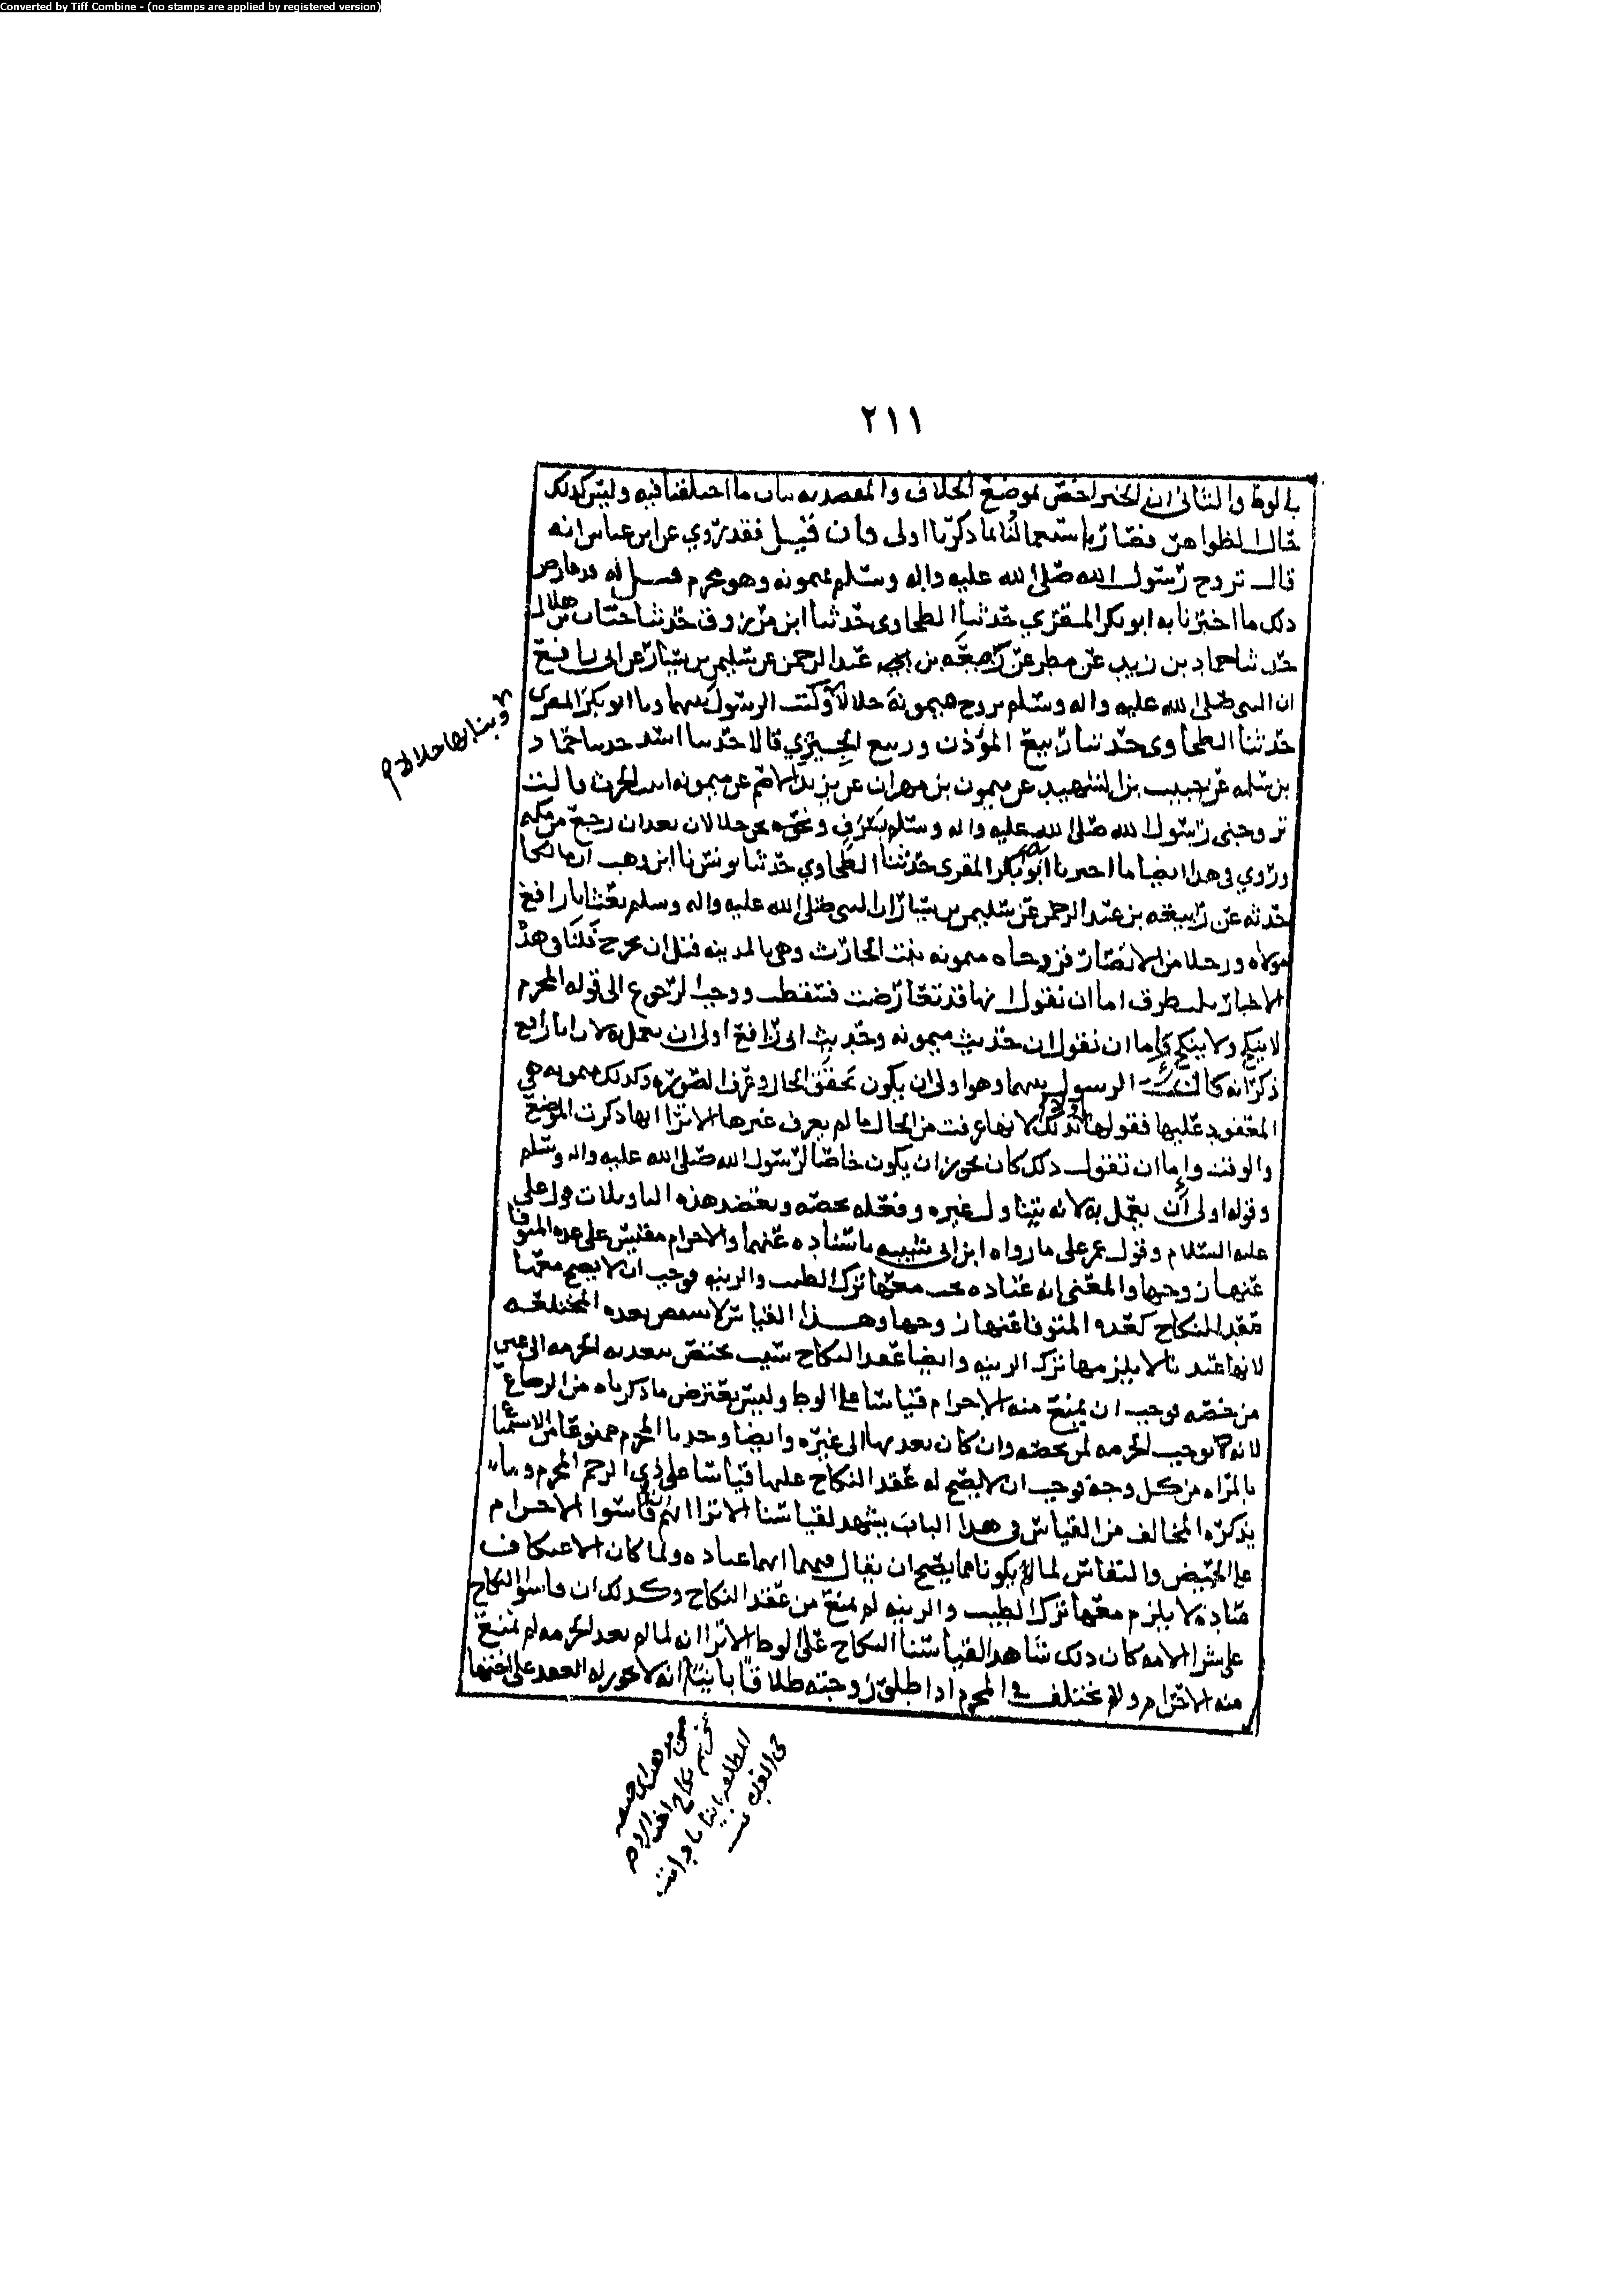 Converted by Tiff Combine - (no stamps are applied by registered version)
٢١١
بالوطا والثاني ان الخبر اخص بموضع الخلاف والمقصد به بيان ما اختلفنا فيه وليس كذلك
حال الظواهر فصار استعمالنا لما ذكرنا اولى فان قيل فقد روي عن ابن عباس انه
قال تزوج رسول الله صلى الله عليه واله وسلم ميمونه وهو محرم قيل له قد عارض
ذلك ما اخبرنا به ابو بكر المقري حدثنا الطحاوي حدثنا ابن مرزوق حدثنا حبان بن هلال
حدثنا حماد بن زيد عن مطر عن ربيعه بن ابي عبد الرحمن عن سليمن بن يسار عن ابي رافع
ان النبي صلى الله عليه واله وسلم تزوج ميمونة حلالا وكنت الرسول بينهما ونا ابو بكر المقري
وبنا بها حلالا
حدثنا الطحاوي حدثنا ربيع المؤذن وربيع الجيزي قالا حدثنا اسد حدثنا حماد
بن سلمه عن حبيب بن الشهيد عن ميمون بن مهران عن يزيد بن الاصم عن ميمونه ابنت الحرث قالت
تزوجني رسول الله صلى الله عليه واله وسلم بسرف ونحن حلالان بعد ان رجع من مكه
وروي في هذا ايضا ما اخبرنا ابو بكر المقري حدثنا الطحاوي حدثنا يونس نا ابن وهب ان مالكا
حدثه عن ربيعه بن عبد الرحمن عن سليمن بن يسار ان النبي صلى الله عليه واله وسلم بعث ابا رافع
مولاه ورجلا من الانصار فزوجاه ميمونه بنت الحارث وهي بالمدينه قبل ان يخرج فلنا في هذه
الاخبار ثلث طرق اما ان نقول انها قد تعارضت فتسقط ووجب الرجوع الى قوله المحرم
لا ينكح ولا ينكح واما ان نقول ان حديث ميمونه وحديث ابي رافع اولى ان يعمل به لان ابا رافع
ذكر انه كان الرسول بينهما وهو اولى ان يكون تحقق الحال وعرف الصوره وكذلك ميمونه هي
المعقود عليها فقولها اولى لانها عرفت من الحال ما لم يعرف غيرها الا ترا انها ذكرت الموضع
والوقت واما ان نقول ذلك كان يجوز ان يكون خاصا لرسول الله صلى الله عليه واله وسلم
وقوله اولى ان يعمل به لانه يتناول غيره وفعله يخصه ويعضد هذه التاويلات قول علي
عليه السلام وقول عمر على ما رواه ابن ابي شيبه باسناده عنهما والاحرام مقيس على عده المتوفا
عنها زوجها والمعنى انه عباده يجب معها ترك الطيب والزينه فوجب ان لا يصح معها
عقد النكاح كعده المتوفا عنها زوجها وهذا القياس لا ينتقض بعده المختلعه
لانها عندنا لا يلزمها ترك الزينه وايضا عقد النكاح سبب يختص بتعديه الحرمه الى غير
من خصه فوجب ان يمنع منه الاحرام قياسا على الوطا وليس يعترض ما ذكرناه من الرضاع
لانه يوجب الحرمه لمن يخصه وان كان تعديها الى غيره وايضا وجدنا المحرم ممنوعا من الاستمتاع
بالمراه من كل وجه فوجب ان لا يصح له عقد النكاح عليها قياسا على ذي الرحم المحرم وما
يذكره المخالف من القياس في هذا الباب يشهد لقياسنا الا ترا انهم قاسوا الاحرام
على الحيض والنفاس لما لم يكونا مما يصح ان يقال فيهما انهما عباده ولما كان الاعتكاف
عبادة لا يلزم معها ترك الطيب والزينه لم يمنع من عقد النكاح وكذلك ان قاسوا النكاح
على شرا الامه كان ذلك شاهدا لقياسنا النكاح على الوطا الا ترا انه لما لم يعد الحرمه لم يمنع
منه الاحرام ولم يختلف في المحرم اذا طلق زوجته طلاقا باينا انه لا يجوز له العقد على اختها